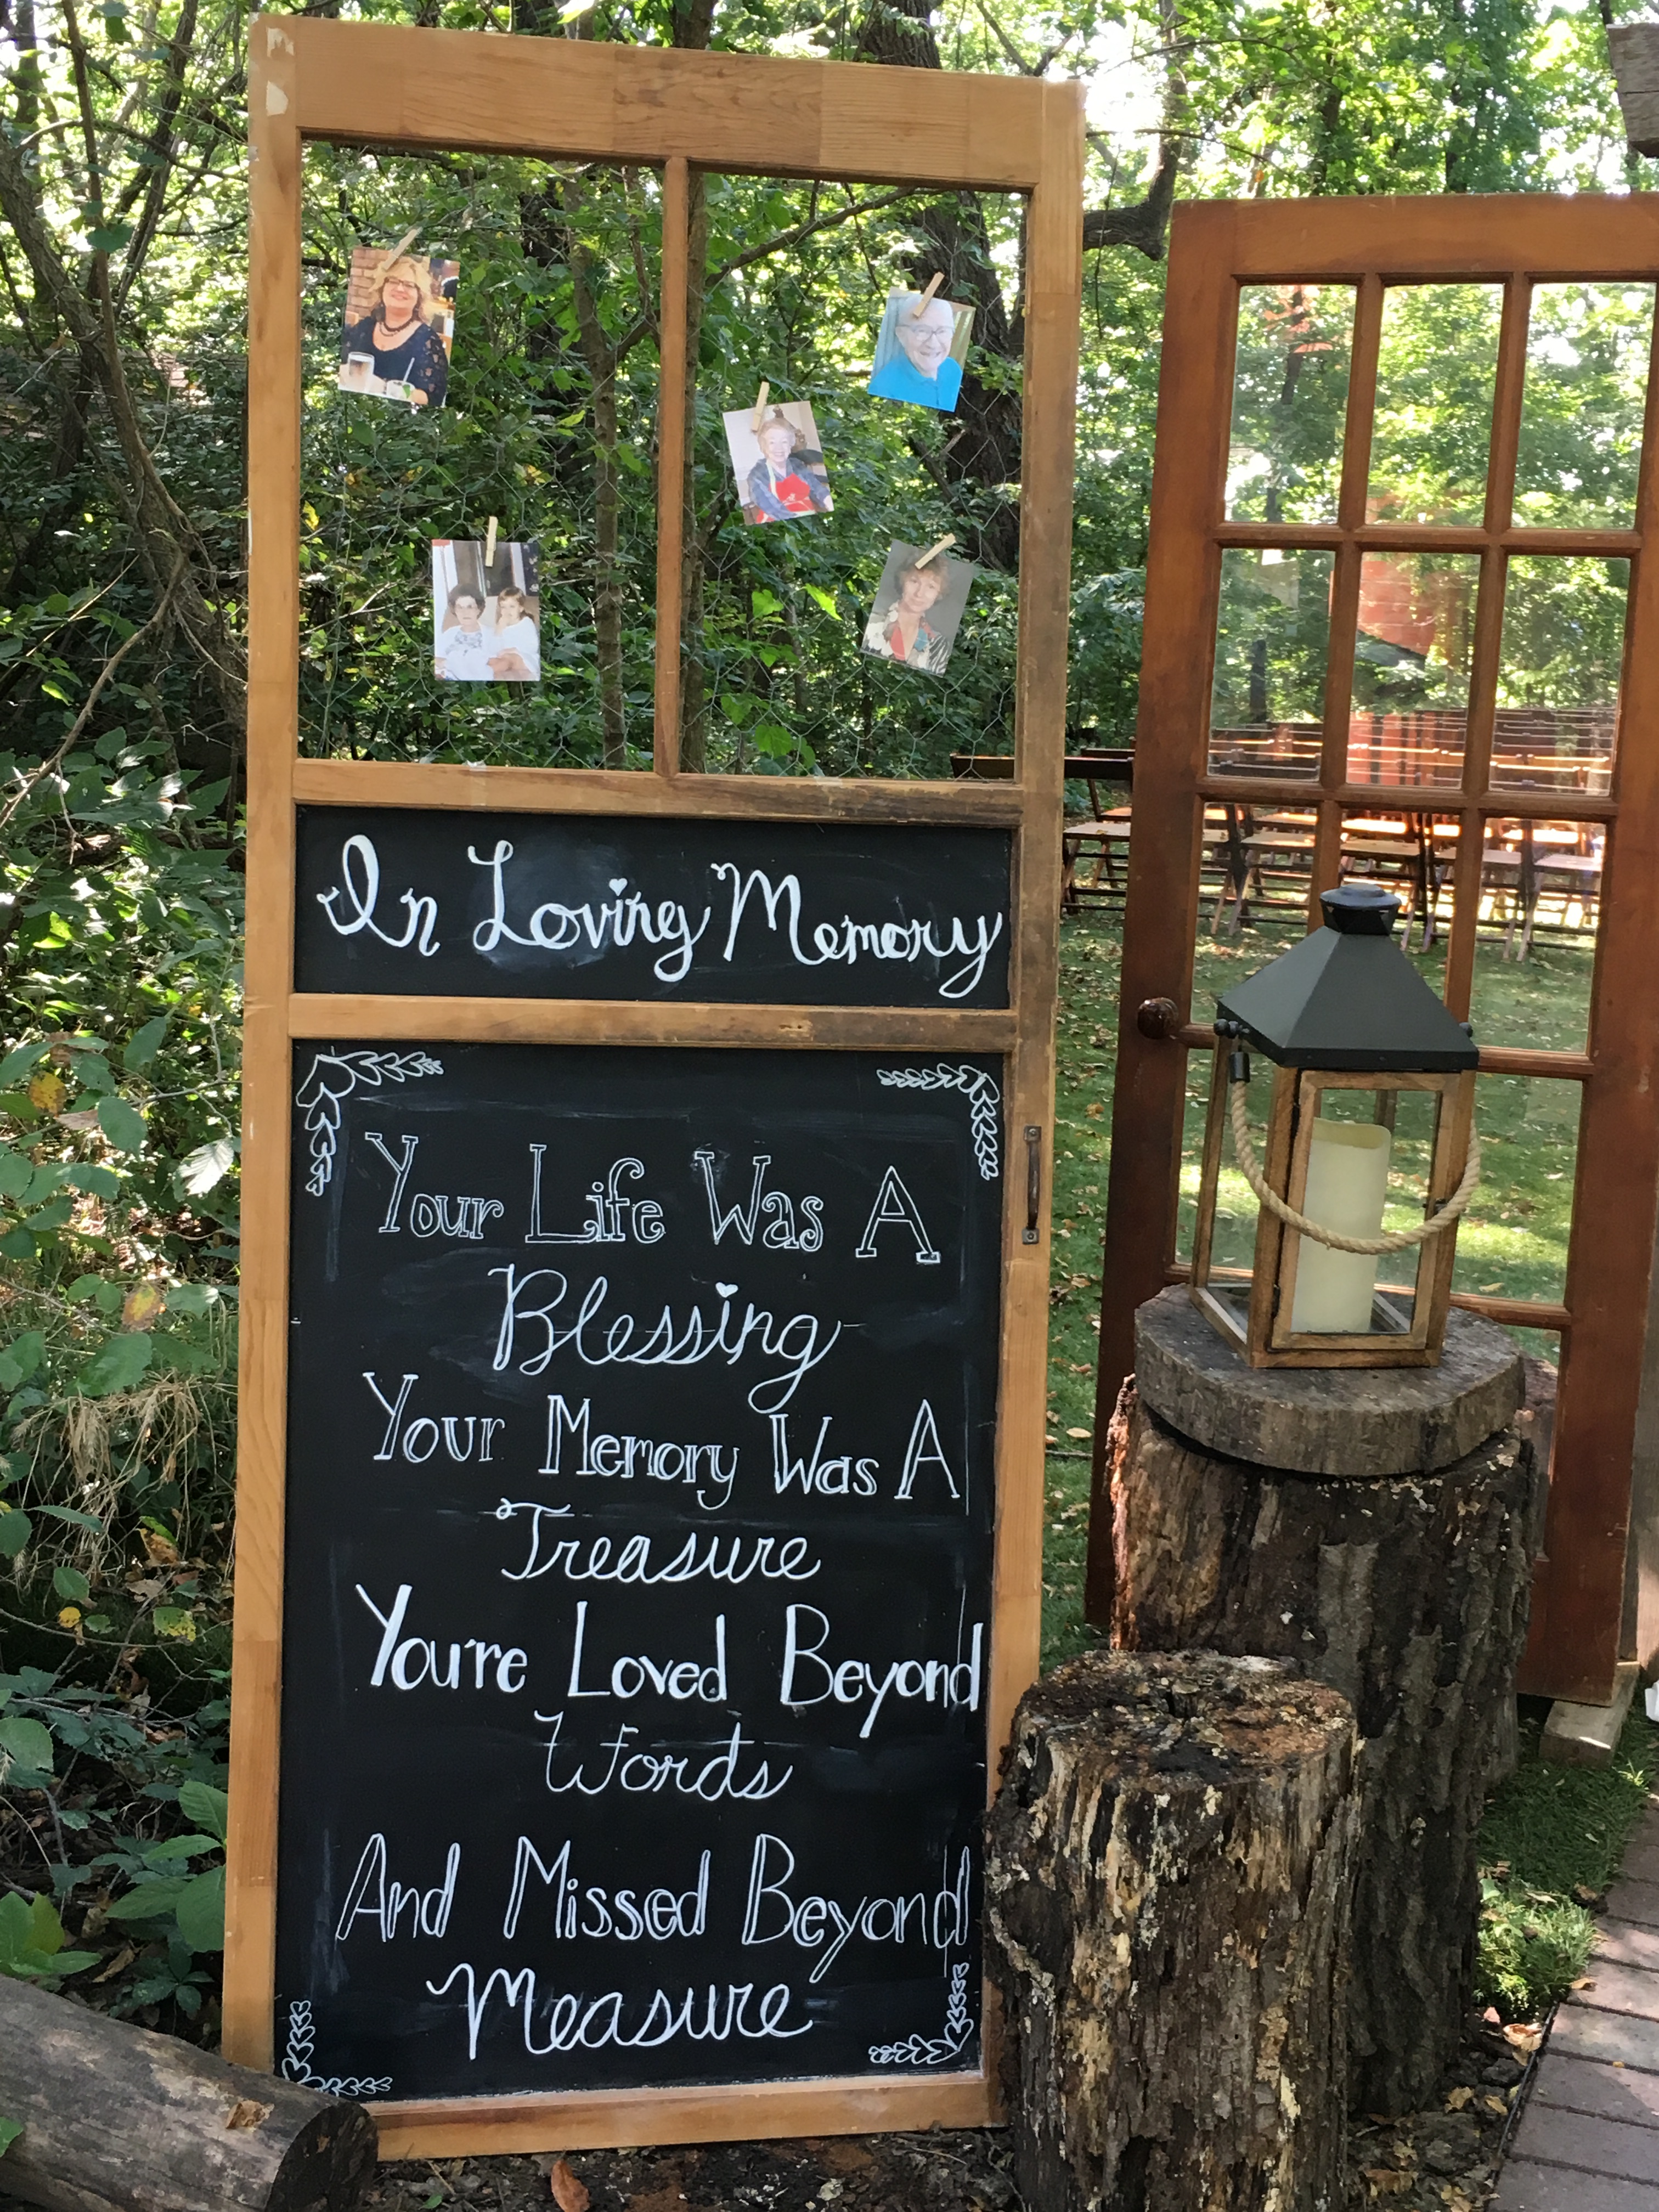 In Loving Memory
Your Life Was A
Blessing
Your Memory Was A
Treasure
You're Loved Beyond
Words
And Missed Beyond
Measure